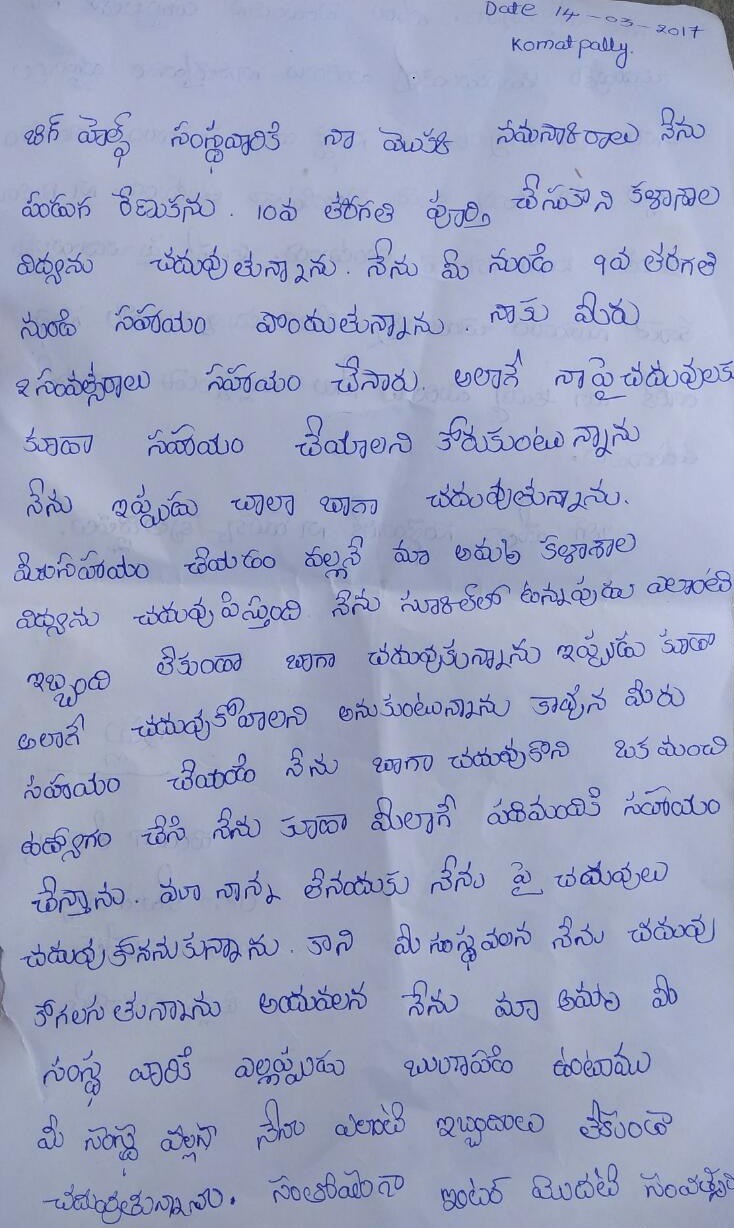 Date 14-03-2017
Komatpally.
బిగ్ హెల్ప్ సంస్థవారికి నా మొదటి నమసాకిరాలు నేను
రేణుకను. 10వ తరగతి పూర్తి చేసుకొని కళాశాల
విద్యను చదువుతున్నాను. నేను మీ నుండి 9వ తరగతి
నుండి సహాయం పొందుతున్నాను. నాకు మీరు
2 సంవత్సరాలు సహాయం చేసారు. అలాగే నా పై చదువులకు
కూడా సహాయం చేయాలని కోరుకుంటున్నాను
నేను ఇప్పుడు చాలా బాగా చదువుతున్నాను.
మీరుసహాయం చేయడం వల్లనే మా అమ్మ కళాశాల
విద్యను చదువుపిస్తుంది. నేను స్కూల్‌లో ఉన్నపుడు ఎలాంటి
ఇబ్బంది లేకుండా బాగా చదువుకున్నాను ఇప్పుడు కూడా
అలాగే చదువుకోవాలని అనుకుంటున్నాను కావున మీరు
సహాయం చేయండి నేను బాగా చదువుకొని ఒక మంచి
ఉద్యోగం చేసి నేను కూడా మీలాగే పదిమందికి సహాయం
చేస్తాను. మా నాన్న లేనందుకు నేను పై చదువులు
చదువుకోననుకున్నాను. కాని మీ సంస్థవలన నేను చదువు
కోగలుగుతున్నాను అందువలన నేను మా అమ్మ మీ
సంస్థ వారికి ఎల్లప్పుడు బుుణపడి ఉంటాము
మీ సంస్థ వల్లనే నేను ఎలాంటి ఇబ్బందులు లేకుండా
చదువుతున్నాను. సంతోషంగా ఇంటర్ మొదటి